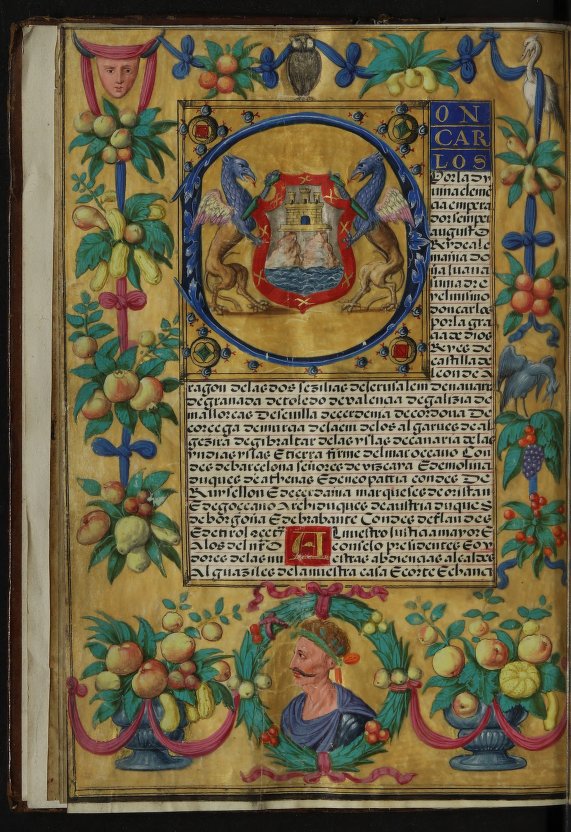 ON
CAR
LOS
Por la dy
uina cleme
cia empera
dor semper
augusto
Rey de ale
mania do
ña Juana
su madre
y el mismo
don carlos
por la gra
cia de dios
Reyes de
castilla de
leon de a
ragon de las dos sezilias de Jerusalem de nauarr
de granada de toledo de valençia de galizia de
mallorcas de seuilla de cerdenia de cordoua De
corcega de murcia de Jaen de los algarues de al
gezira de gibraltar de las yslas de canaria de las
yndias yslas E tierra firme del mar oceano Con
des de barcelona señores de vizcaya E de molina
duques de athenas E de neopatria condes De
Ruysellon E de cerdania marqueses de oristan
E de gociano Archiduques de austria duques
de borgoña E de brabante Condes de flandes
E de tirol
Al nuestro Justicia mayor E
A los del nro consejo presidentes E oy
dores de las nuestras abdiençias alcaldes
Alguaziles de la nuestra casa E corte E chanci